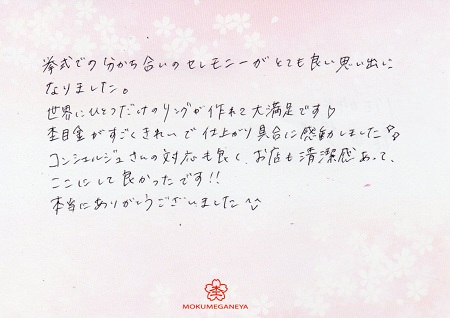 挙式での分かち合いのセレモニーがとても良い思い出に
なりました。
世界にひとつだけのリングが作れて大満足です♡
杢目金がすごくきれいで仕上がり具合に感動しました
コンシェルジュさんの対応も良く、お店も清潔感あって、
ここにして良かったです!!
本当にありがとうございました
MOKUMEGANEYA